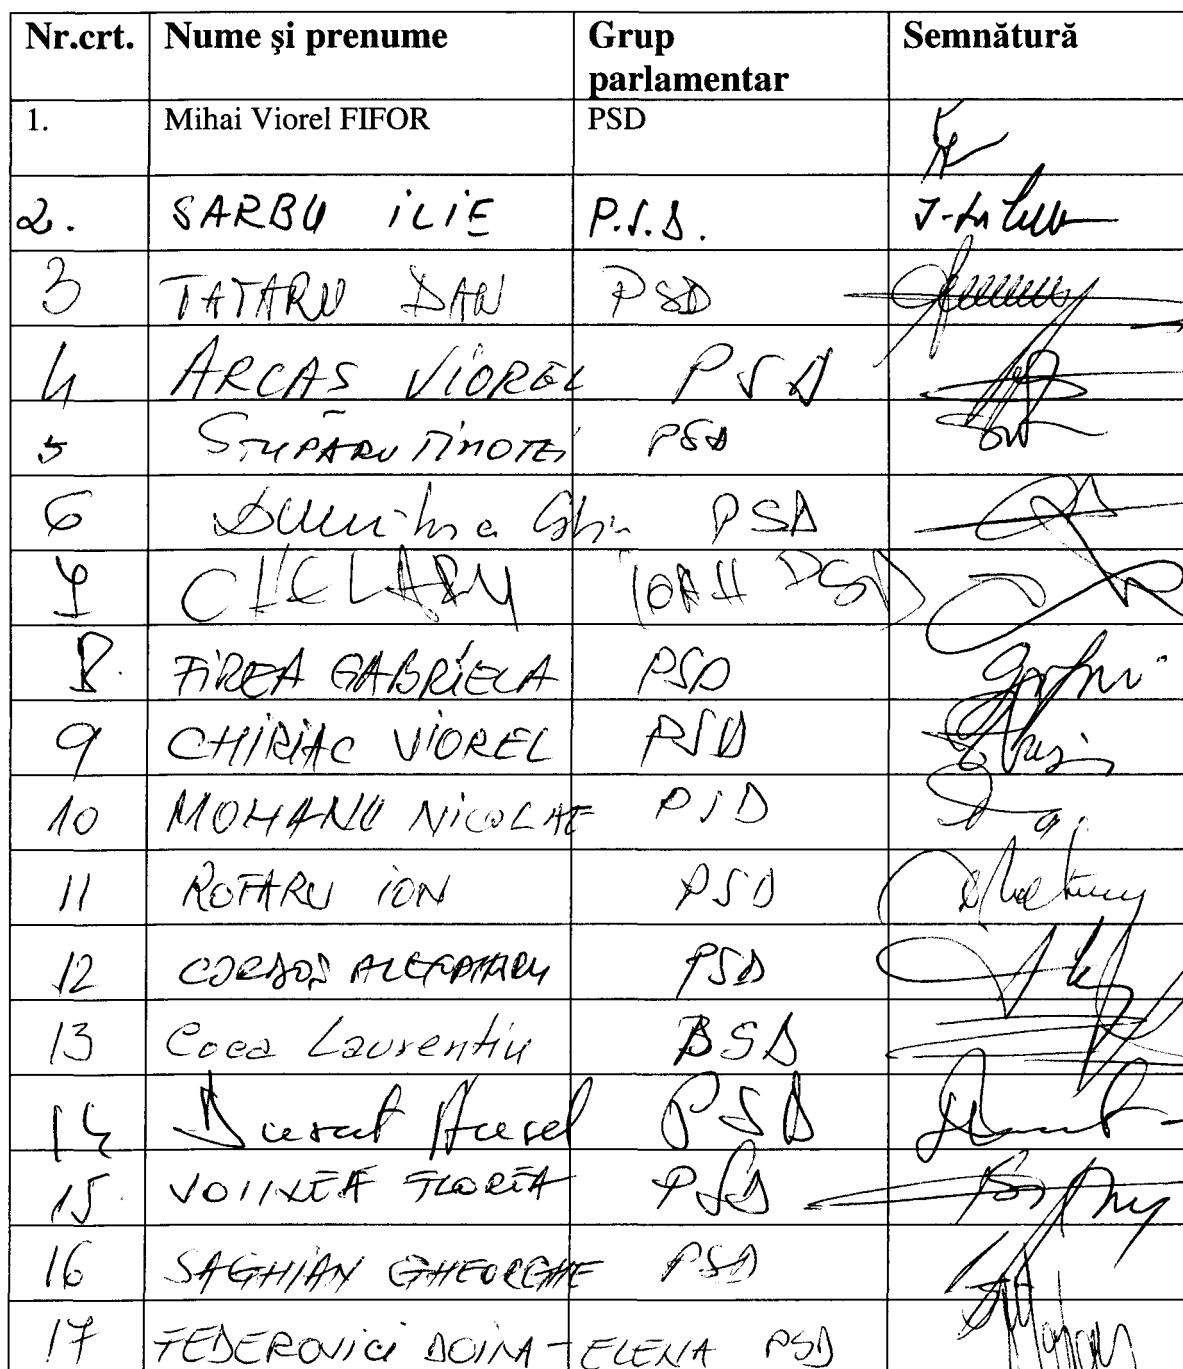 Nr.crt. Nume și prenume Grup parlamentar Semnătură
1. Mihai Viorel FIFOR PSD
2. SARBU ILIE P.S.D.
3 TATARU DAN PSD
4 ARCAS VIOREL PSD
5 STUPARU TIMOTEI PSD
6 Dumitru PSD
7 CICLARU IOAN PSD
8. FIREA GABRIELA PSD
9 CHIRIAC VIOREL PSD
10 MOHANU NICOLAE PSD
11 ROTARU ION PSD
12 CORDOS ALEXANDRU PSD
13 Coca Laurentiu PSD
14 Aurel PSD
15. FLOREA PSD
16 SAGHIAN GHEORGHE PSD
17 FEDEROVICI DOINA-ELENA PSD